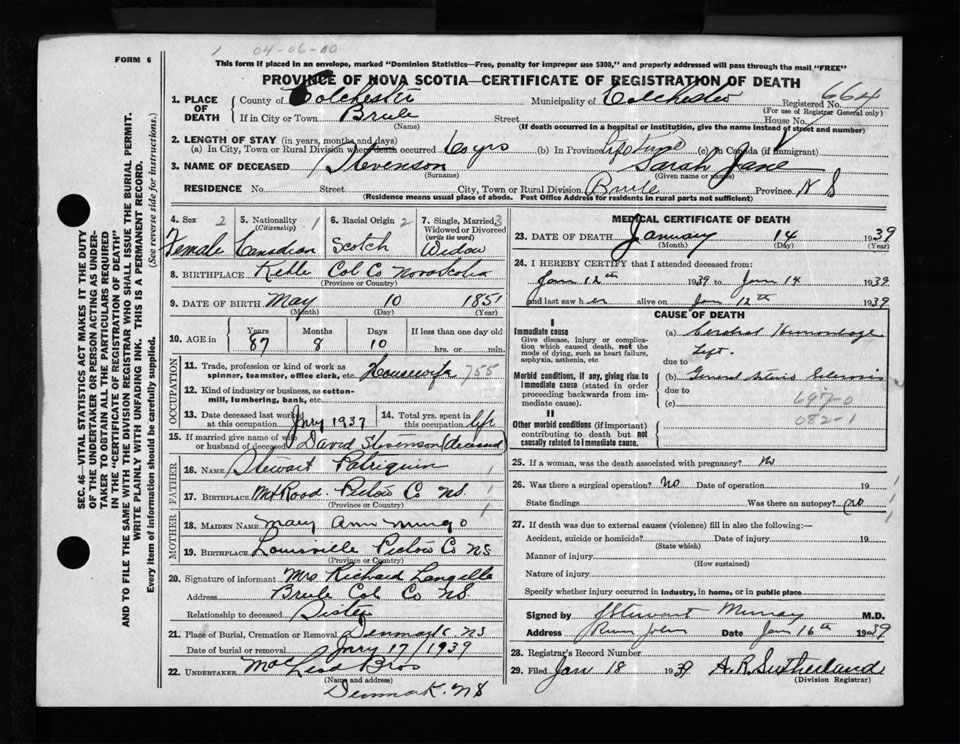 1 04-06-00
FORM 6
This form if placed in an envelope, marked "Dominion Statistics—Free, penalty for improper use $300," and properly addressed will pass through the mail "FREE"
PROVINCE OF NOVA SCOTIA—CERTIFICATE OF REGISTRATION OF DEATH
1. PLACE OF DEATH County of Colchester Municipality of Colchester Registered No. 664
(For use of Registrar General only)
If in City or Town Brule Street House No.
(Name) (If death occurred in a hospital or institution, give the name instead of street and number)
2. LENGTH OF STAY (in years, months and days)
(a) In City, Town or Rural Division where death occurred 60 yrs (b) In Province Life Time (c) In Canada (if immigrant)
3. NAME OF DECEASED Stevenson Sarah Jane
(Surname) (Given name or names)
RESIDENCE No. Street City, Town or Rural Division Brule Province N S
(Residence means usual place of abode. Post Office Address for residents in rural parts not sufficient)
4. Sex 2 5. Nationality 1 (Citizenship) 6. Racial Origin 2 7. Single, Married, 3 Widowed or Divorced (write the word)
Female Canadian Scotch Widow
8. BIRTHPLACE Col Co Nova Scotia
(Province or Country)
9. DATE OF BIRTH May 10 1851
(Month) (Day) (Year)
10. AGE in Years Months Days If less than one day old
87 8 10 hrs. or min.
OCCUPATION
11. Trade, profession or kind of work as spinner, teamster, office clerk, etc. Housewife 755
12. Kind of industry or business, as cotton-mill, lumbering, bank, etc.
13. Date deceased last worked at this occupation Jnry 1937 14. Total yrs. spent in this occupation life
15. If married give name of wife or husband of deceased David Stevenson (deceased)
FATHER
16. NAME Stewart Patriquin
17. BIRTHPLACE Mt Rood Pictou Co NS. 1
(Province or Country)
MOTHER
18. MAIDEN NAME Mary Ann Mingo 1
19. BIRTHPLACE Louisville Pictou Co NS
(Province or Country)
20. Signature of informant Mrs Richard Langille
Address Brule Col Co NS.
Relationship to deceased Sister
21. Place of Burial, Cremation or Removal Denmark NS
Date of burial or removal Jnry 17/1939
22. UNDERTAKER MacLeod Bros
(Name and address)
Denmark NS
MEDICAL CERTIFICATE OF DEATH
23. DATE OF DEATH January 14 1939
(Month) (Day) (Year)
24. I HEREBY CERTIFY that I attended deceased from:
Jan 12th 1939 to Jan 14 1939
and last saw her alive on Jan 12th 1939
CAUSE OF DEATH
I
Immediate cause
Give disease, injury or complication which caused death, not the mode of dying, such as heart failure, asphyxia, asthenia, etc.
(a) Cerebral Hemorrhage
Left.
due to
Morbid conditions, if any, giving rise to immediate cause (stated in order proceeding backwards from immediate cause).
(b) General
due to
(c) 697-0
082-1
II
Other morbid conditions (if important) contributing to death but not causally related to immediate cause.
25. If a woman, was the death associated with pregnancy? No
26. Was there a surgical operation? No Date of operation 19
State findings Was there an autopsy? No
27. If death was due to external causes (violence) fill in also the following:—
Accident, suicide or homicide? Date of injury 19
(State which)
Manner of injury
(How sustained)
Nature of injury
Specify whether injury occurred in industry, in home, or in public place
Signed by J Stewart Murray M.D.
Address River John Date Jan 16th 1939
28. Registrar's Record Number
29. Filed Jan 18 1939 A. R. Sutherland
(Division Registrar)
SEC. 46—VITAL STATISTICS ACT MAKES IT THE DUTY
OF THE UNDERTAKER OR PERSON ACTING AS UNDER-
TAKER TO OBTAIN ALL THE PARTICULARS REQUIRED
IN THE "CERTIFICATE OF REGISTRATION OF DEATH"
AND TO FILE THE SAME WITH THE DIVISION REGISTRAR WHO SHALL ISSUE THE BURIAL PERMIT.
WRITE PLAINLY WITH UNFADING INK. THIS IS A PERMANENT RECORD.
Every item of information should be carefully supplied. (See reverse side for instructions.)